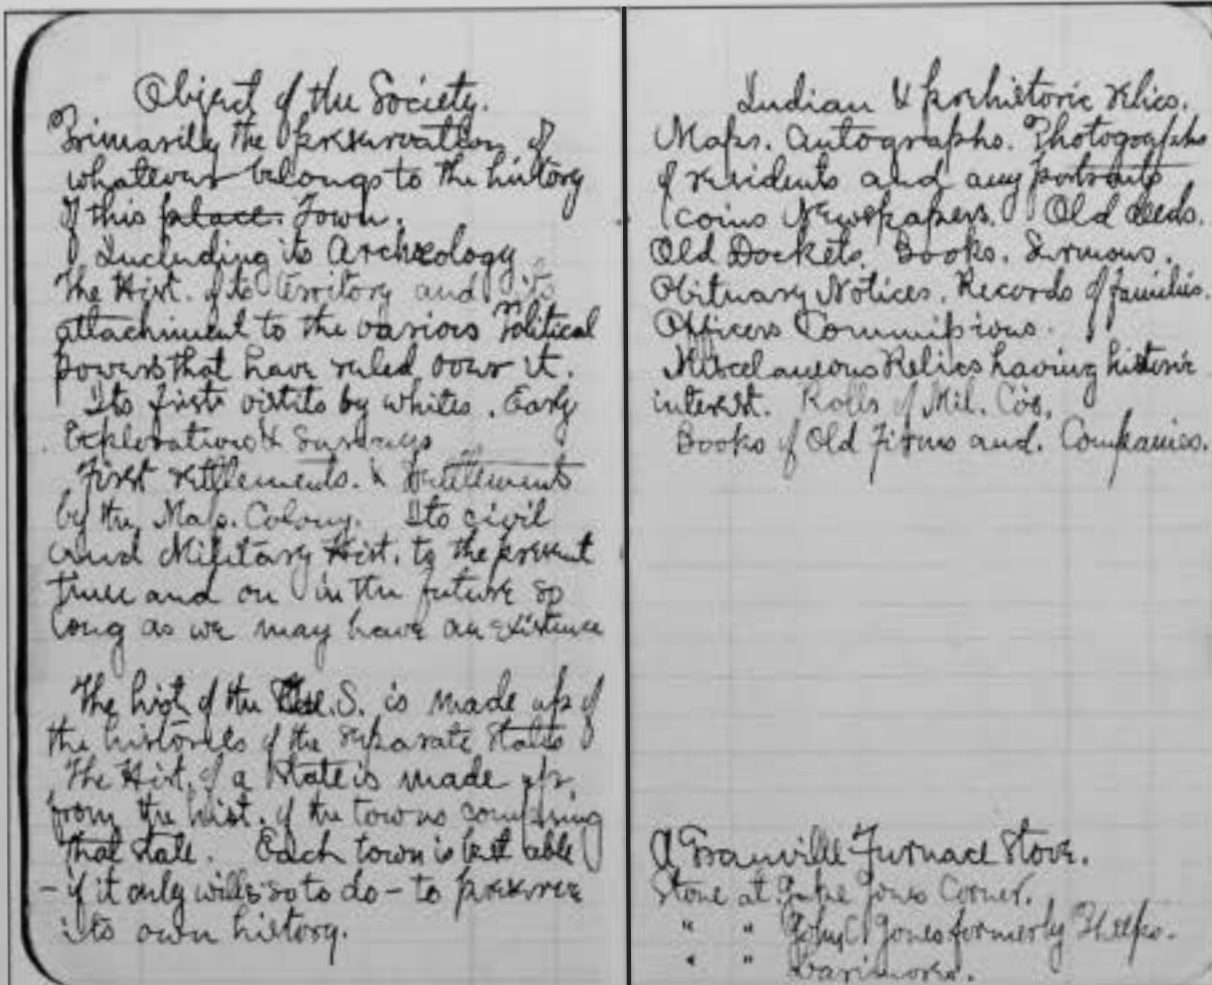 Object of the Society.
Primarily the preservation of
whatever belongs to the history
of this place. Town.
Including its Archæology
The Hist. of its territory and its
attachment to the various Political
powers that have ruled over it.
Its first visits by whites. Early
Explorations & Surveys
First settlements. & Settlements
by the Mass. Colony. Its civil
and Military Hist. to the present
time and on in the future so
long as we may have an existence
The hist of the U.S. is made up of
the histories of the separate States
The Hist. of a State is made up
from the hist. of the towns comprising
that state. Each town is best able
- if it only wills so to do - to preserve
its own history.
Indian & prehistoric relics.
Maps. Autographs. Photographs
of residents and any portraits
Coins Newspapers. Old deeds.
Old Dockets. Books. Sermons.
Obituary Notices. Records of families.
Officers Commissions.
Miscelaneous Relics having historic
interest. Rolls of Mil. Co's.
Books of Old Firms and. Companies.
A Granville Furnace Stove.
Stone at Jones Corner.
" " John C. Jones formerly Phelps.
" " Larimores.